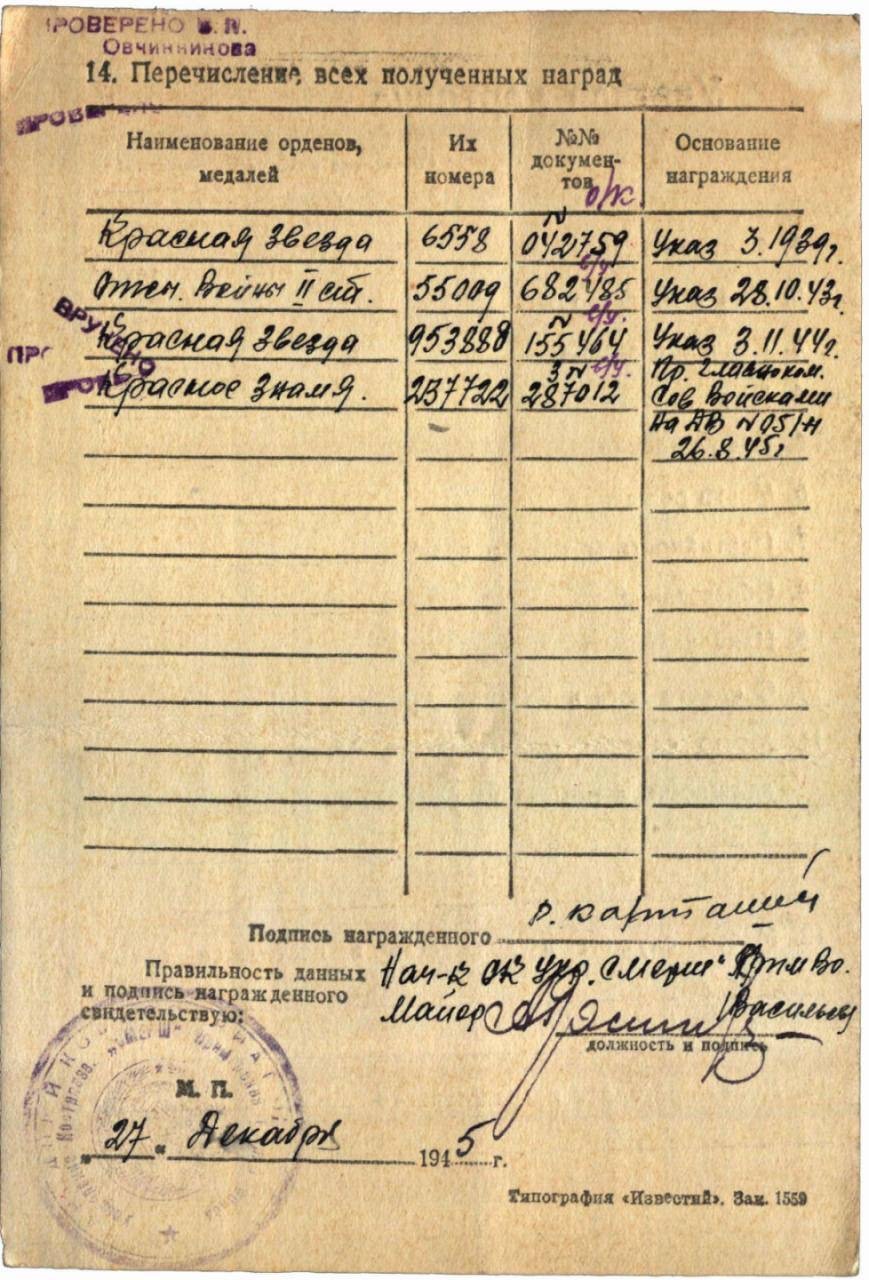 ПРОВЕРЕНО
Овчинникова
14. Перечисление всех полученных наград
Наименование орденов, медалей
Их номера
№№ документов
Основание награждения
о/к.
Красная Звезда 6558 042759 Указ 3.1939г.
Отеч. Войны II ст. 55009 682485 Указ 28.10.43г.
Красная Звезда 953888 155464 Указ 3.11.44г.
Красное Знамя. 237722 287012 Пр. Главноком.
Сов Войсками
на ДВ №051н
26.8.45г
ВРУЧЕНО
Подпись награжденного
Правильность данных
и подпись награжденного
свидетельствую:
Нач-к ОК Упр. "Смерш" ПримВо.
Майор Васильев
должность и подпись
М. П.
"27" Декабря 1945 г.
Типография «Известий». Зак. 1559